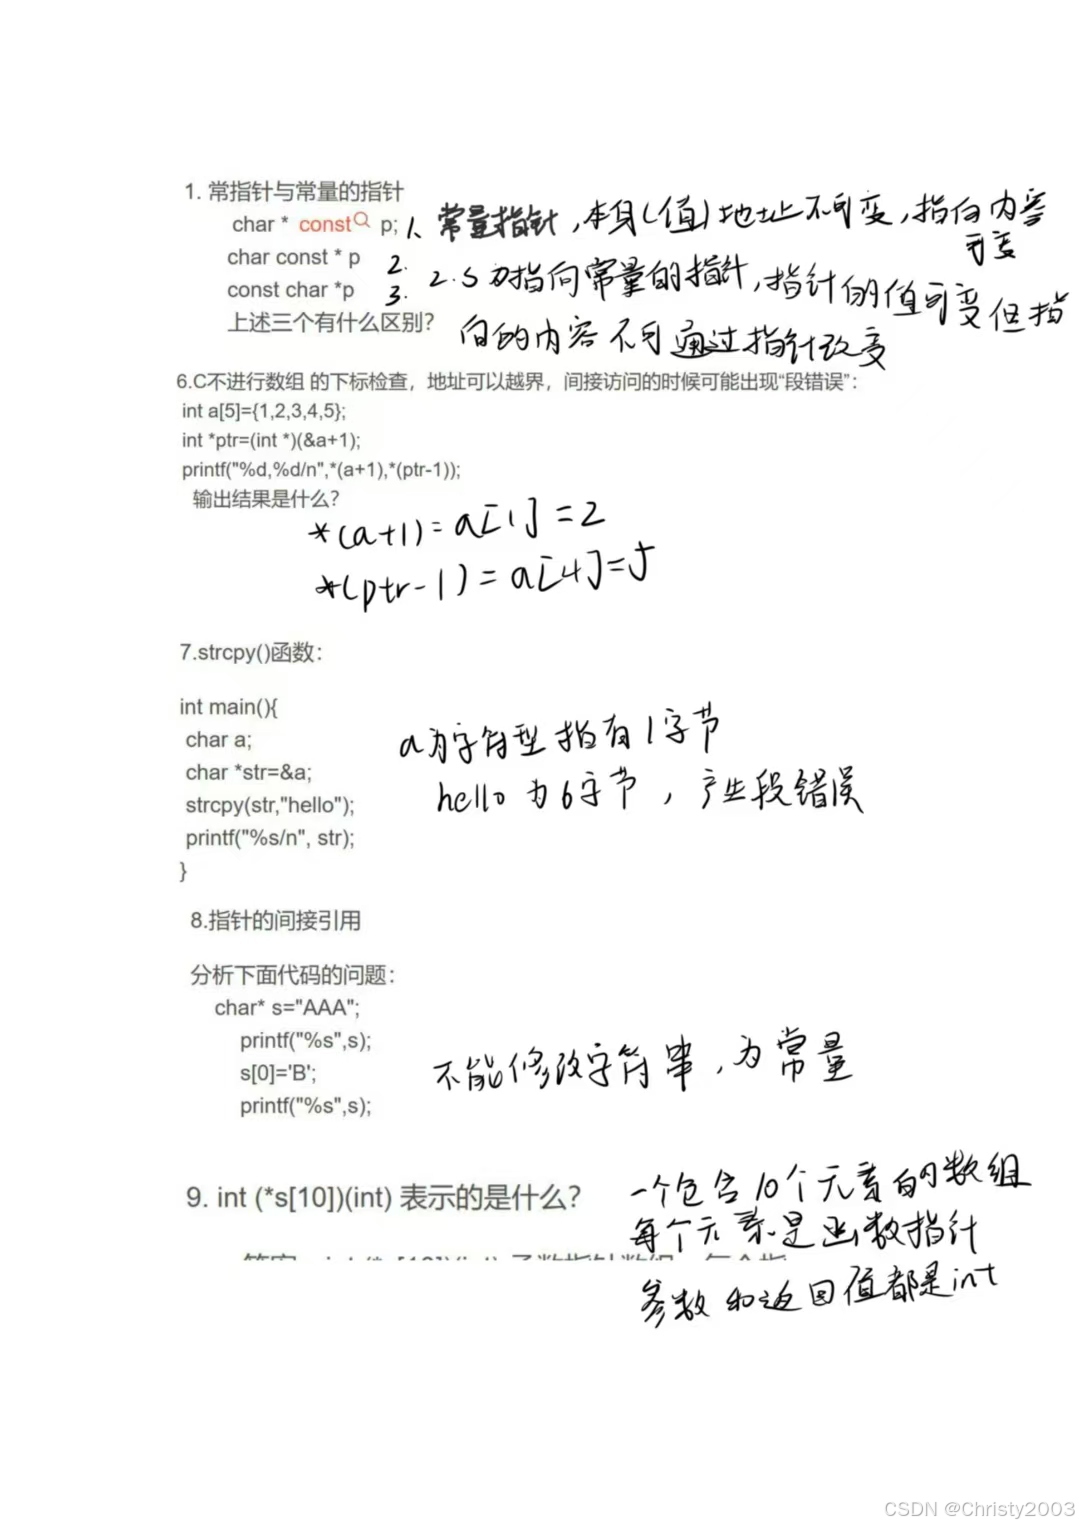 1. 常指针与常量的指针
char * const p; 1、常量指针,本身(值)地址不可变,指向内容
可变
char const * p 2.
const char *p 3.
2.3为指向常量的指针,指针的值可变但指
上述三个有什么区别?
向的内容不可通过指针改变
6.C不进行数组 的下标检查,地址可以越界,间接访问的时候可能出现“段错误”:
int a[5]={1,2,3,4,5};
int *ptr=(int *)(&a+1);
printf("%d,%d/n",*(a+1),*(ptr-1));
输出结果是什么?
*(a+1)=a[1]=2
*(ptr-1)=a[4]=5
7.strcpy()函数:
int main(){
char a;
char *str=&a;
strcpy(str,"hello");
printf("%s/n", str);
}
a为字符型 指有1字节
hello 为6字节,产生段错误
8.指针的间接引用
分析下面代码的问题:
char* s="AAA";
printf("%s",s);
s[0]='B';
printf("%s",s);
不能修改字符串,为常量
9. int (*s[10])(int) 表示的是什么?
一个包含10个元素的数组
每个元素是函数指针
参数和返回值都是int
CSDN @Christy2003